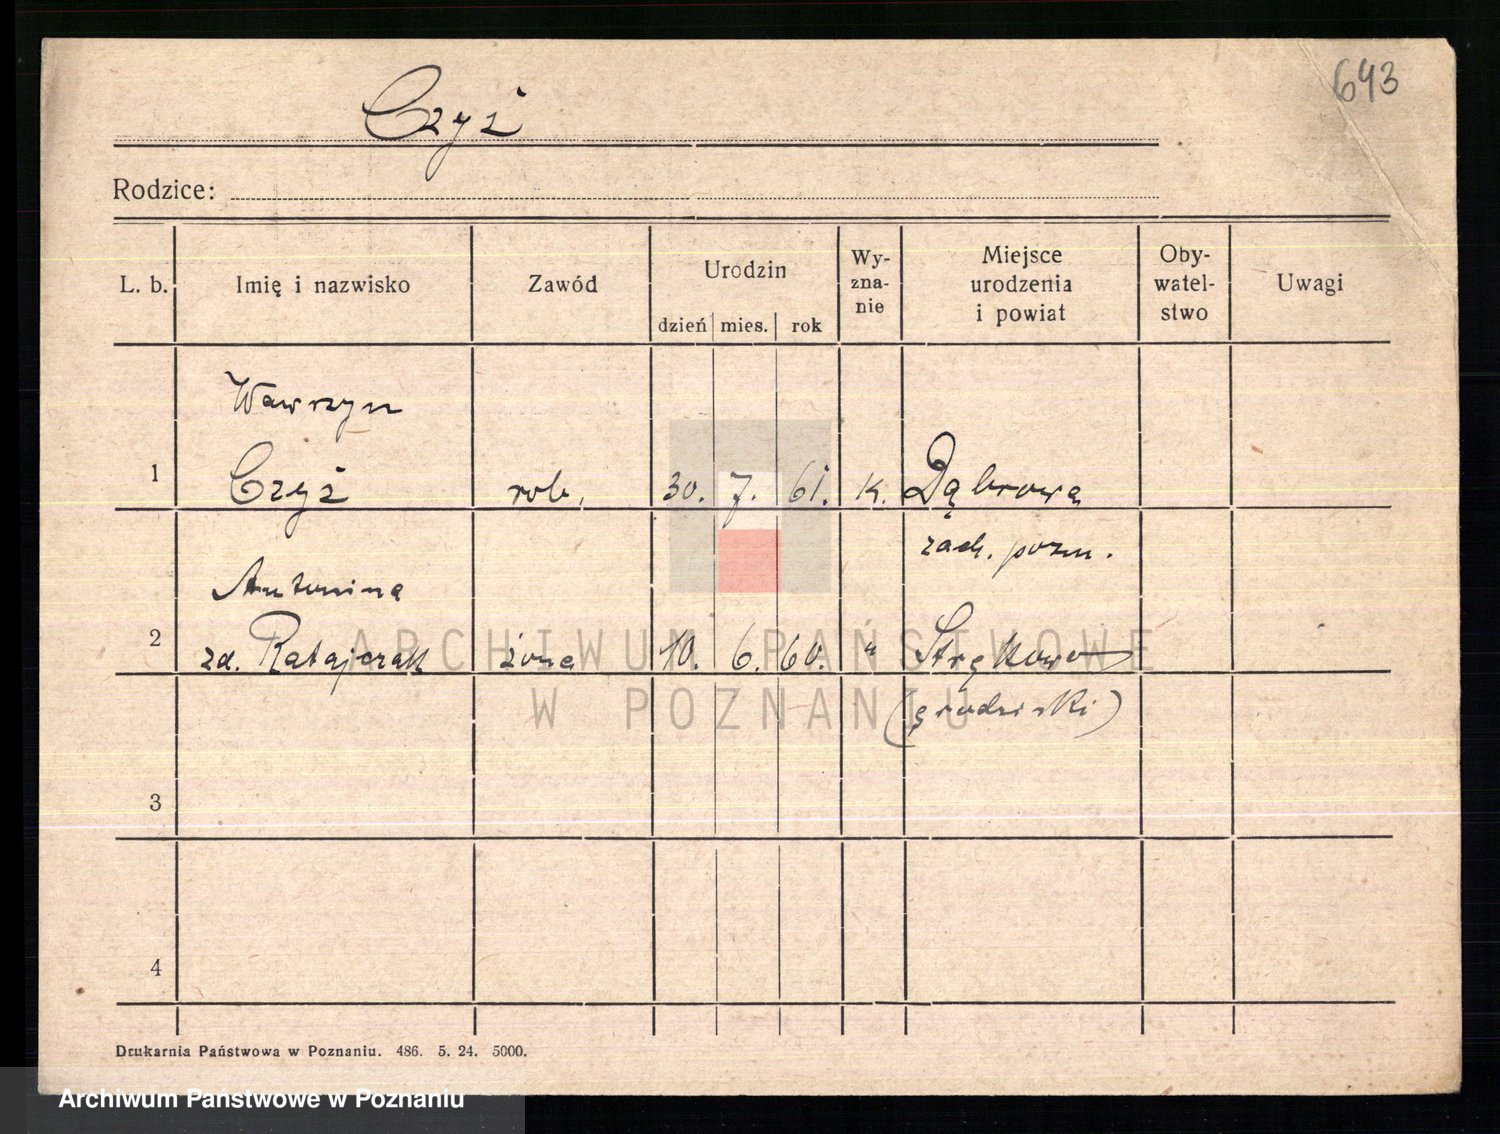 643
Czyż
Rodzice:
L. b. Imię i nazwisko Zawód Urodzin dzień mies. rok Wy-zna-nie Miejsce urodzenia i powiat Oby-watel-stwo Uwagi
Wawrzyn
1 Czyż rob. 30. 7. 61. k. Dąbrowa
zach. pozn.
Antonina
2 zd. Ratajczak żona 10. 6. 60. " Strękowo
(grodziski)
3
4
ARCHIWUM PAŃSTWOWE
W POZNANIU
Drukarnia Państwowa w Poznaniu. 486. 5. 24. 5000.
Archiwum Państwowe w Poznaniu